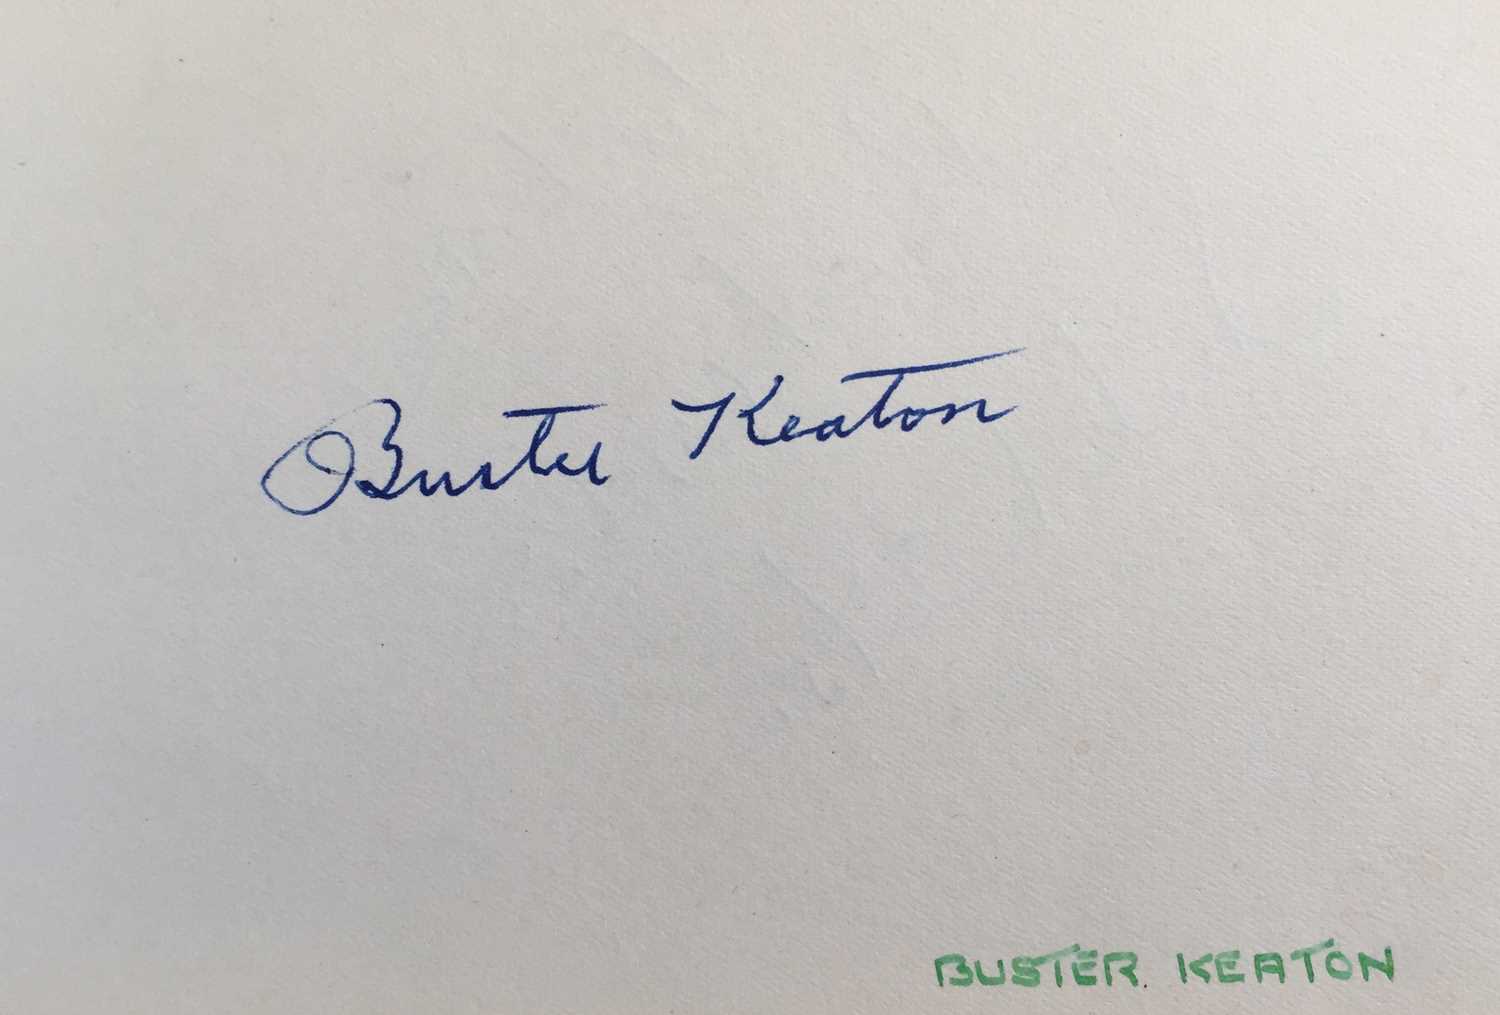 Buster Keaton
BUSTER KEATON